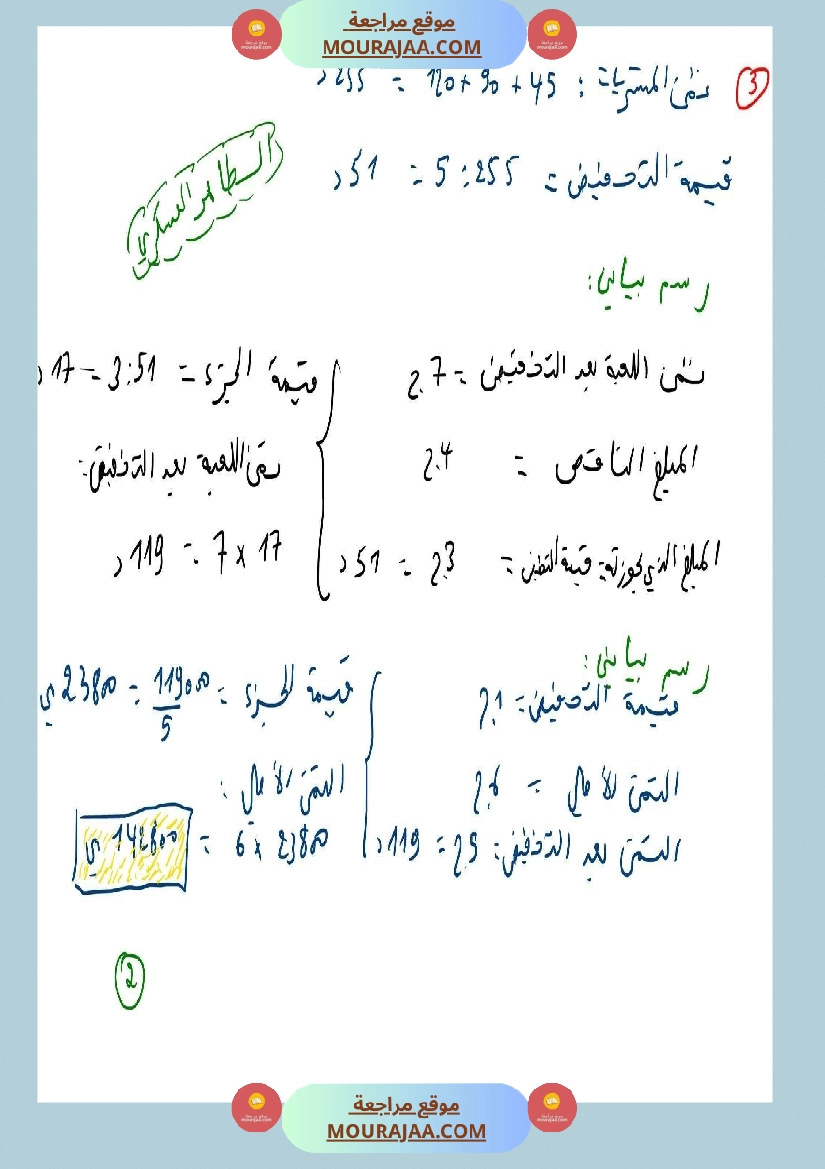 موقع مراجعة
MOURAJAA.COM
③ ثمن المشتريات : 45 + 90 + 120 = 255 د
قيمة التخفيض = 255 : 5 = 51 د
السظامر العسكري
رسم بياني:
ثمن اللعبة بعد التخفيض = 7 ج
المبلغ الناقص = 4 ج
المبلغ الذي بحوزته = قيمة التخفيض = 3 ج = 51 د
قيمة الجزء = 51 : 3 = 17 د
ثمن اللعبة بعد التخفيض:
17 x 7 = 119 د
رسم بياني:
قيمة التخفيض = 1 ج
الثمن الأصلي = 6 ج
الثمن بعد التخفيض = 5 ج = 119 د
قيمة الجزء = 119000/5 = 23800 مي
الثمن الأصلي :
23800 x 6 = 142800 مي
2
موقع مراجعة
MOURAJAA.COM